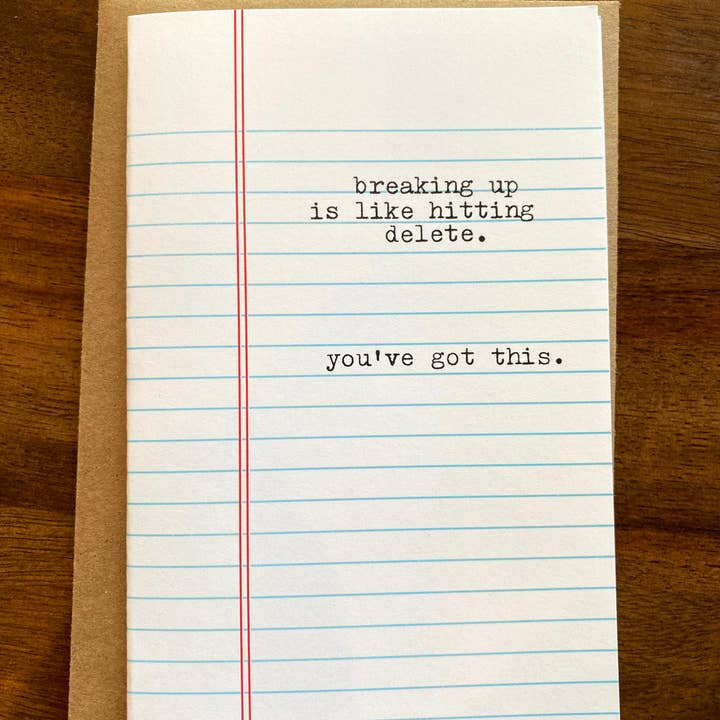 breaking up
is like hitting
delete.
you've got this.